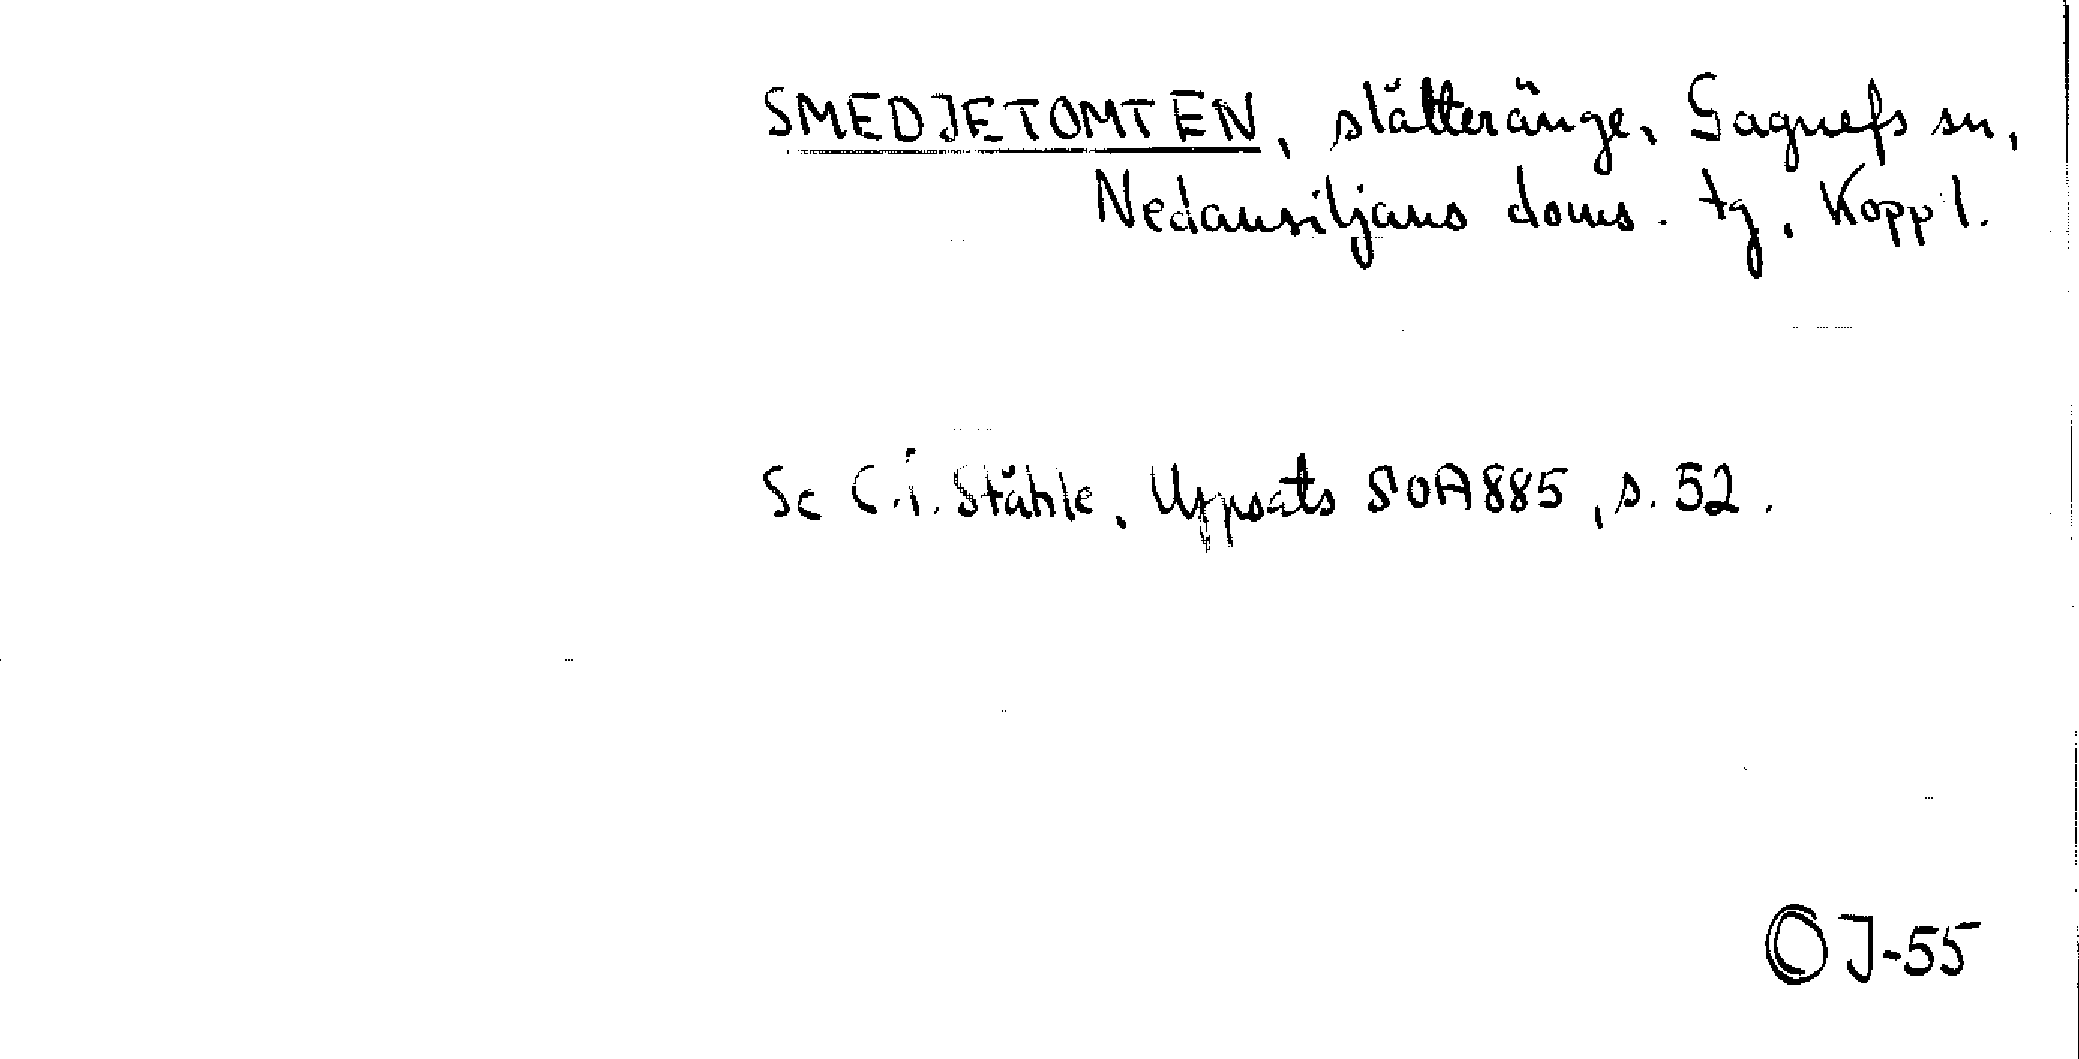 SMEDJETOMTEN, slåtteränge, Gagnefs sn,
Nedansiljans doms. tg, Kopp l.
Se C.I. Ståhle, Uppsats SOA 885, s. 52.
OJ-55